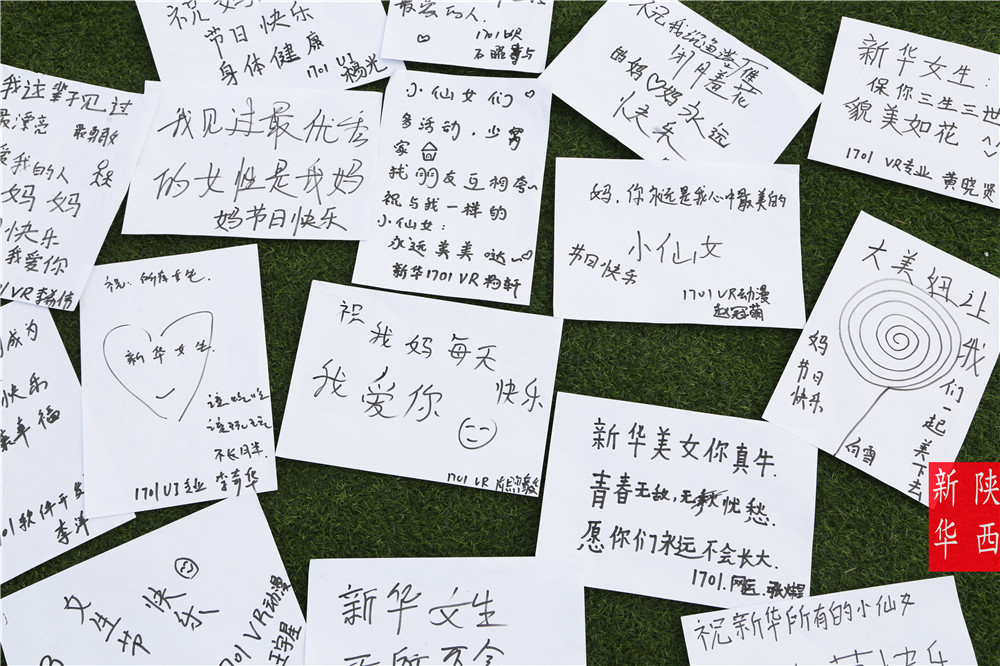 祝妈妈
节日快乐
身体健康
1701 VR 杨光
最爱的人.
1701 VR
闭月羞花
的妈♡妈永远
快乐
新华女生:
保你三生三世
貌美如花
1701 VR专业 黄晓贤
我这辈子见过
最漂亮
爱我的人
妈妈
快乐
我爱你
我见过最优秀
的女性是我妈
妈节日快乐
小仙女们
多活动,少窝
家
祝与我一样的
小仙女:
永远美美哒~
新华1701 VR 杨轩
妈,你永远是我心中最美的
小仙女
节日快乐
1701 VR动漫
赵冠萌
大美妞让
我们一起美下去
妈
节日
快乐
白雪
祝:所有女生.
新华女生.
该吃吃
该玩玩
不长月半
1701 UI专业 李奇华
祝我妈每天
快乐
我爱你
1701 VR
新华美女你真牛.
青春无敌,无忧愁.
愿你们永远不会长大.
1701.
成为
快乐
幸福
1701 软件开发
李洋
女生节
快乐
1701 VR动漫
王宇星
新华女生
祝新华所有的小仙女
快乐
陕西
新华